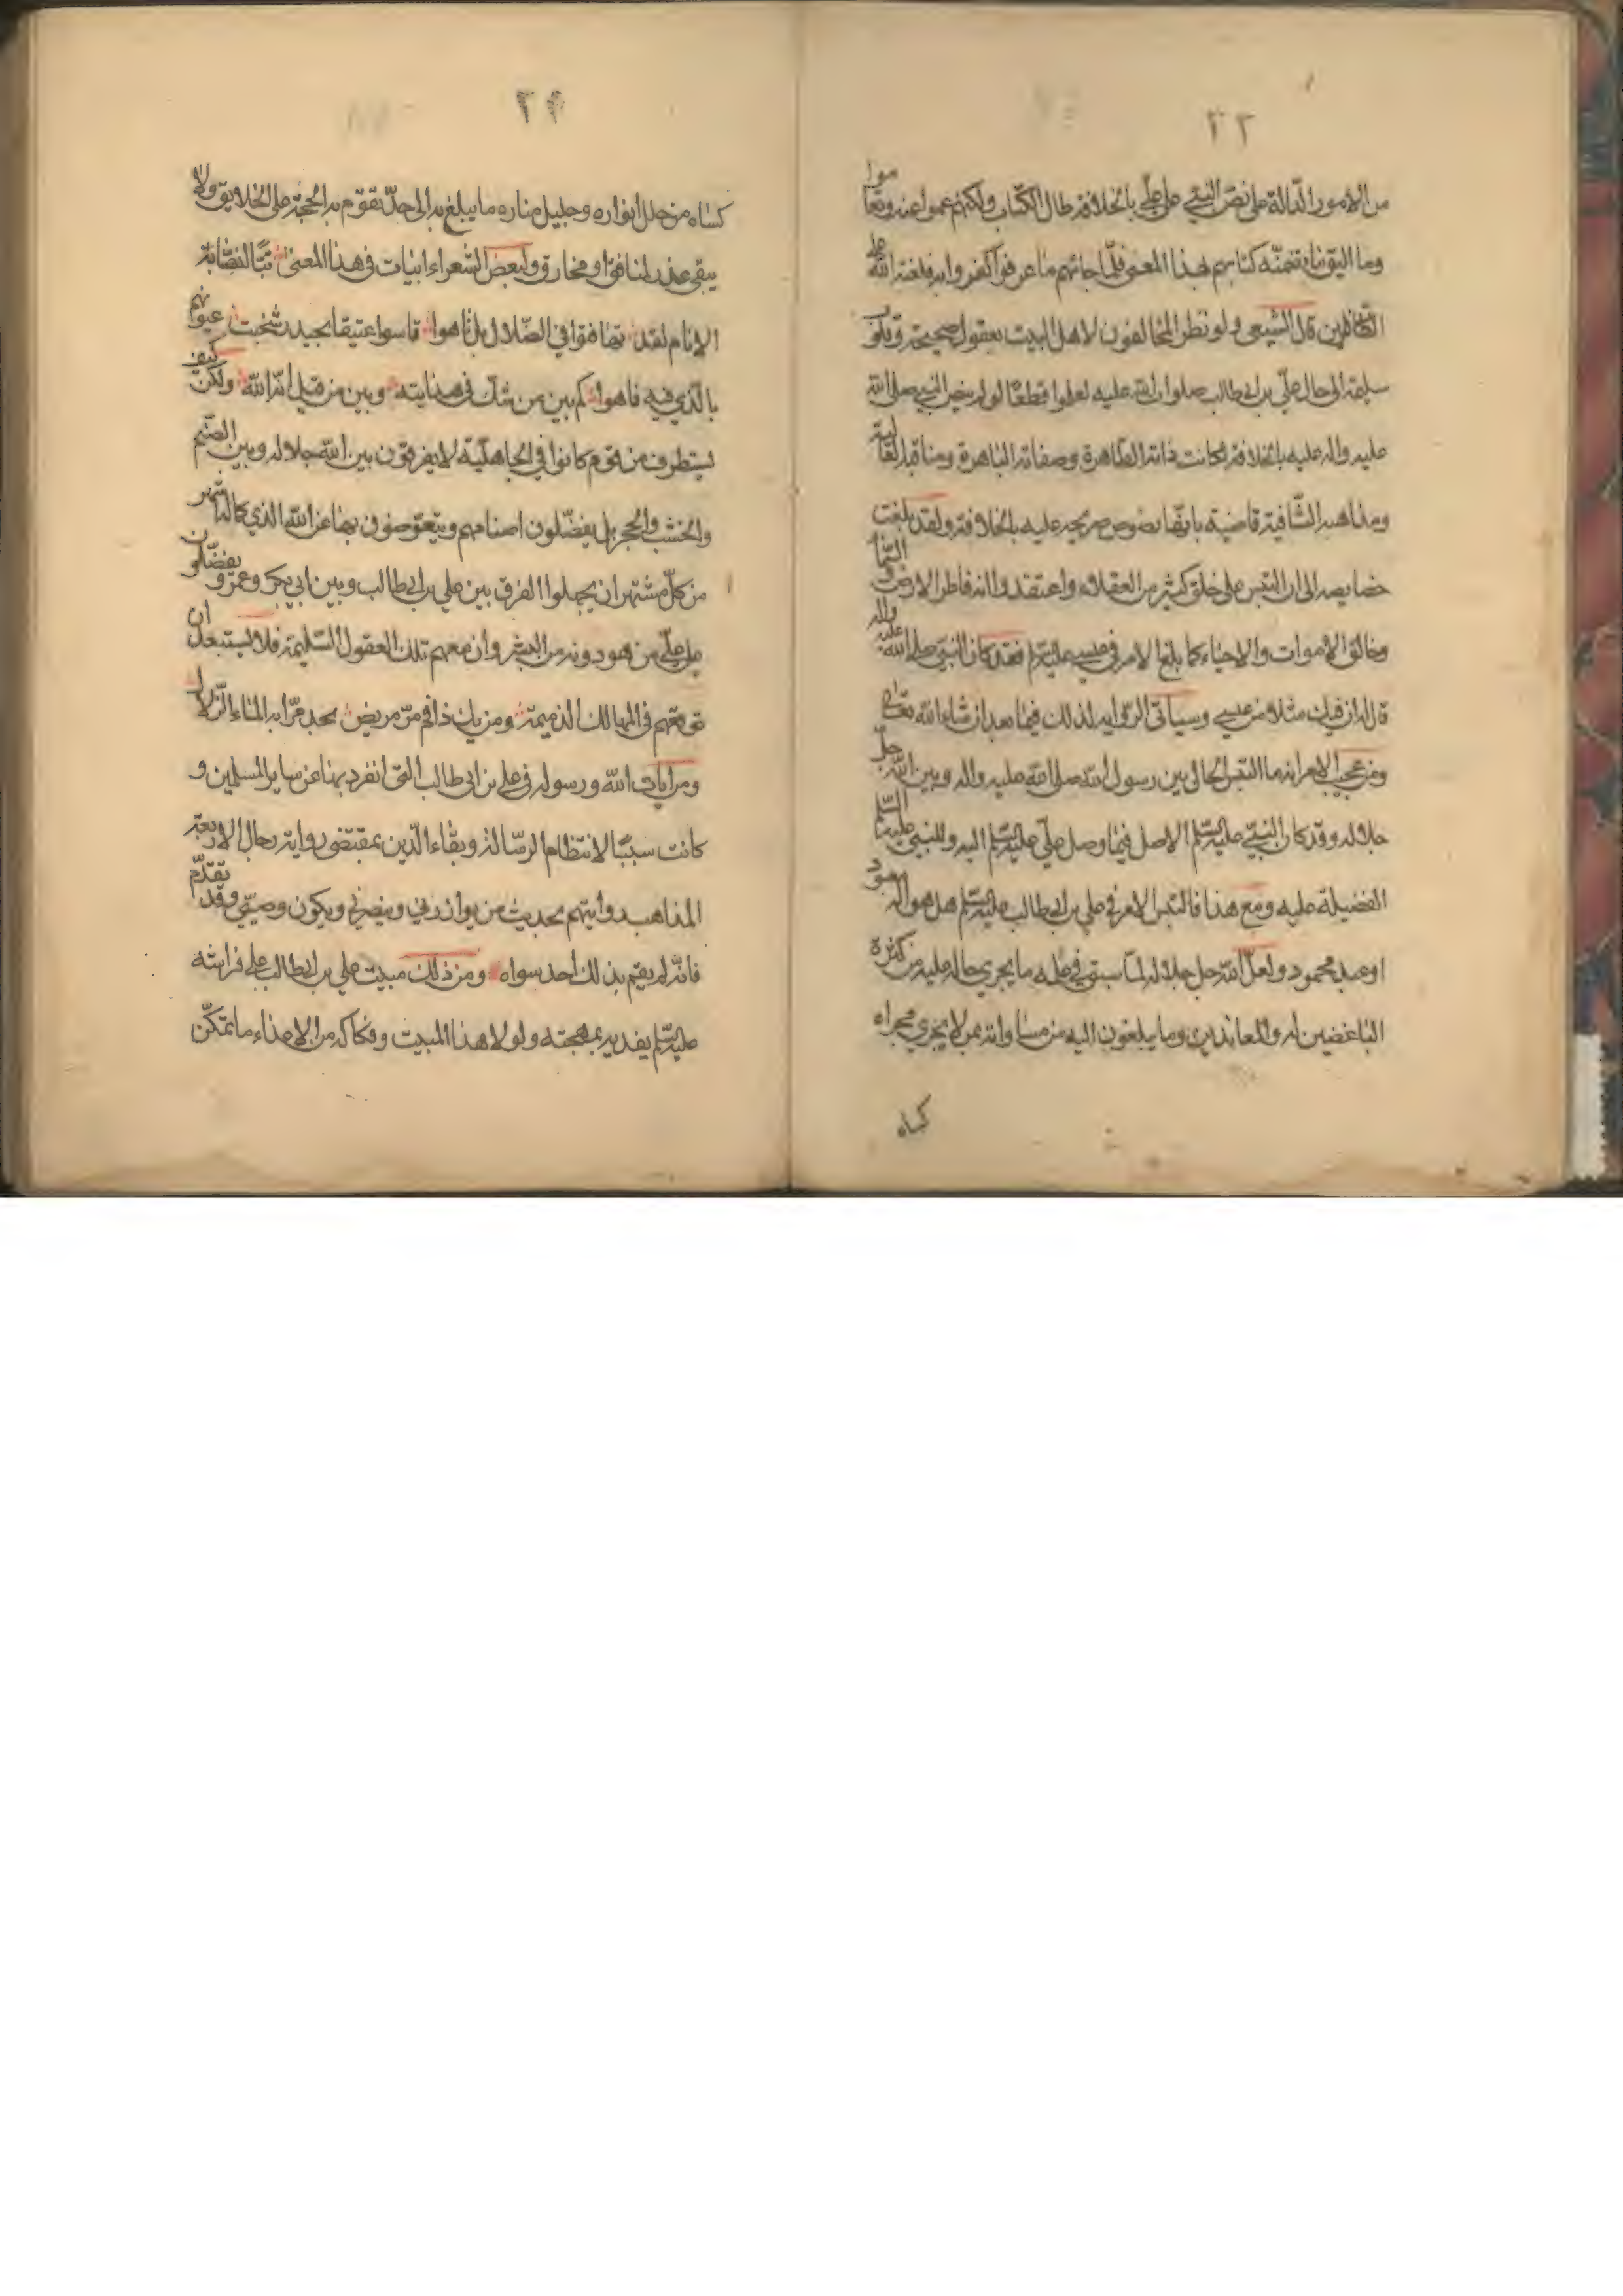 ٢٣
من الامور الدّالة على نصّ النبيّ على عليّ بالخلافة طال الكتاب ولكنهم عموا عنه وتعاموا
وما اليق بنا يتضمنّه كتابهم لهذا المعنى فلمّا جائهم ما عرفوا كفروا به فلعنة الله على
الظالمين قال الشيعى ولو نظر المخالفون لاهل البيت بعقول صحيحة وقلوب
سليمة الى حال علّي بن ابي طالب صلوات الله عليه لعلموا قطعًا لو لم ينصّ النبي صلى الله
عليه واله عليه بالخلافة لكانت ذاته الطاهرة وصفاته الباهرة ومناقبه العالية
ومذاهبه الشّافية قاضية بانهّا نصوص صريحة عليه بالخلافة ولقد بلغت
خصايصه الى ان التبس على خلق كثير من العقلاء واعتقدوا انه فاطر الارض والسّما
وخالق الاموات والاحياء كما بلغ الامر في عيسى عليه السّلم فقد كان النبّي صلى الله عليه واله
قال له ان فيك مثلا من عيسى وسياتى الرواية لذلك فيما بعد ان شاء الله تعالى
ومن عجيب الامر انه ما التبس الحال بين رسول الله صلى الله عليه واله وبين الله جلّ
جلاله وقد كان النبّي عليه السّلم الاصل فيما وصل علّي عليه السّلم اليه وللنبي عليهما السّلم
الفضيلة عليه ومع هذا فالتبس الامر في علي بن ابي طالب عليه السّلم هل هو اله معبود
او عبد محمود ولعلّ الله جل جلاله لمّا سبق في علمه ما يجري حاله عليه من كثرة
الباغضين له والمعاندين وما يبلغون اليه من مساواته بمن لا يجري مجراه
كساه
٢٤
كساه من حلل انواره وجليل مناره ما يبلغ به الى حدّ تقوم به الحجة على الخلايق ولا
يبقى عذر لمنافق او مخارق ولبعض الشعراء ابيات في هذا المعنى تبًّا لنصّابة
الانام لقد تهافتوا في الضّلال بل تاهوا قاسوا عتيقا بحيدر سخنت عيونهم
بالذّي فيه فاهوا كم بين من شكّ في هدايته وبين من قيل انّه الله ولكن كيف
يستطرف من قوم كانوا في الجاهليّة لا يفرقون بين الله جلاله وبين الصّنم
والخشب والحجر بل يفضّلون اصنامهم ويتعوّضون بها عن الله الذي كماله اشهر
من كلّ مشتهر ان يجهلوا الفرق بين علي بن ابي طالب وبين ابي بكر وعمر و يفضّلون
على علّي من هو دونه من البشر وان معهم تلك العقول السّليمة فلا يستبعد ان
توقعهم في المهالك الذميمة ومن يك ذا فم مرّ مريض يجد مرّا به الماء الزّلالا
ومن ايات الله ورسوله في علي بن ابي طالب التى انفرد بها عن ساير المسلمين و
كانت سببًا لانتظام الرسّالة وبقاء الدّين بمقتضى رواية رجال الاربعة
المذاهب روايتهم بحديث من يوازرني وينصرني ويكون وصيّي وقد تقدّم
فانّه لم يقم بذلك احد سواه ومن ذلك مبيت علي بن ابي طالب على فراشه
عليه السّلم يفديه بمهجته ولولا هذا المبيت وفكاكه من الاعداء ما تمكّن